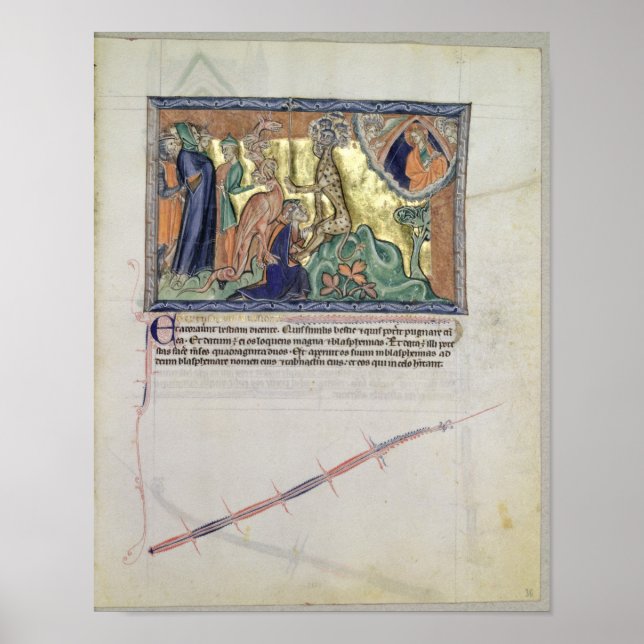 Et adorauert bestiam dicentes. Quis similis bestie ⁊ quis poterit pugnare cū
ea. Et datum ÷ ei os loquens magna ⁊ blasphemias. Et data ÷ illi potes
tas facere menses quadraginta duos. Et aperuit os suum in blasphemias ad
deum blasphemare nomen eius ⁊ tabernaclm eius. et eos qui in celo hitant.